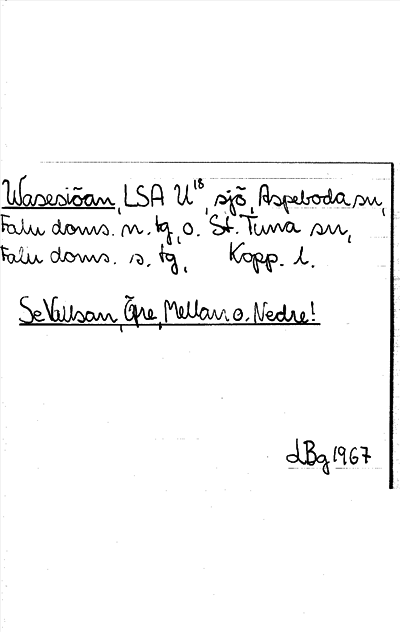 Wasesiöan, LSA U18, sjö, Aspeboda sn,
Falu doms. n. tg, o. St. Tuna sn,
Falu doms. s. tg, Kopp. l.
Se Vällsan, Övre, Mellan o. Nedre!
LBg 1967